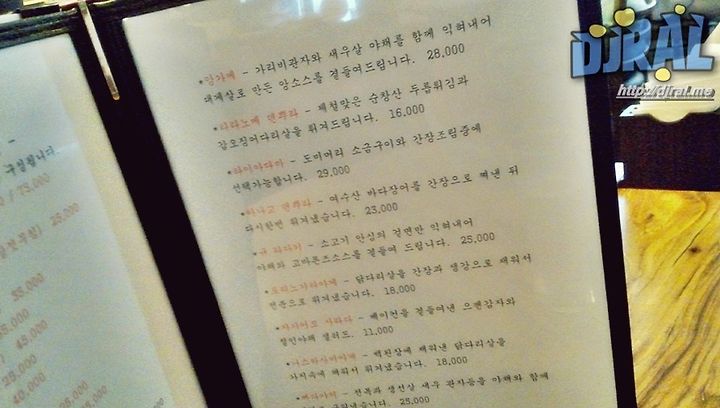 DJRAL
http://djral.me
앙가께 - 가리비관자와 새우살 야채를 함께 익혀내어
대게살로 만든 앙소스를 곁들여드립니다. 28,000
타라노메 덴뿌라 - 제철맞은 순창산 두릅튀김과
갑오징어다리살을 튀겨드립니다. 16,000
타이아다마 - 도미머리 소금구이와 간장조림중에
선택가능합니다. 29,000
아나고 덴뿌라 - 여수산 바다장어를 간장으로 쪄낸 뒤
다시한번 튀겨냈습니다. 23,000
규 타다키 - 소고기 안심의 겉면만 익혀내어
야채와 고마폰즈소스를 곁들여 드립니다. 25,000
토리노가라아게 - 닭다리살을 간장과 생강으로 재워서
전분으로 튀겨냈습니다. 18,000
자가이모 사라다 - 베이컨을 곁들여낸 으깬감자와
샐러드. 11,000
- 백된장에 재워낸 닭다리살을
튀겨냈습니다. 18,000
- 전복과 생선살 새우 관자등을 야채와 함께
25,000
구성됩니다.
/ 75,000
25,000
35,000
45,000
25,000
40,000